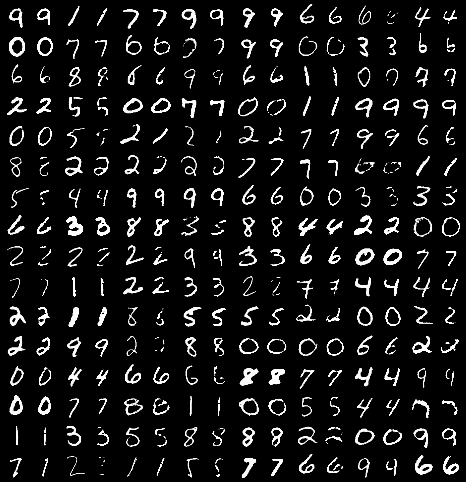 9 9 1 1 7 7 9 9 9 9 6 6 6 6 4 4
0 0 7 7 6 6 7 7 9 9 0 0 3 3 6 6
6 6 8 8 6 6 9 9 6 6 1 1 0 0 7 7
2 2 5 5 0 0 7 7 0 0 1 1 9 9 9 9
0 0 5 5 2 2 2 2 2 2 7 7 9 9 6 6
8 8 2 2 2 2 2 2 7 7 7 7 0 0 1 1
5 5 4 4 9 9 9 9 6 6 0 0 3 3 3 3
6 6 3 3 8 8 3 5 8 8 4 4 2 2 0 0
2 2 2 2 2 2 9 9 3 3 6 6 0 0 7 7
7 7 1 1 2 2 3 3 2 2 7 7 4 4 4 4
2 2 1 1 8 8 5 5 5 5 2 2 0 0 2 2
2 2 9 9 2 2 8 8 0 0 0 0 6 6 2 2
0 0 4 4 6 6 6 6 8 8 7 7 4 4 9 9
0 0 7 7 8 8 1 1 0 0 5 5 4 4 7 7
1 1 3 3 5 5 8 8 8 8 2 2 0 0 9 9
7 1 2 2 1 1 5 5 7 7 6 6 9 9 6 6